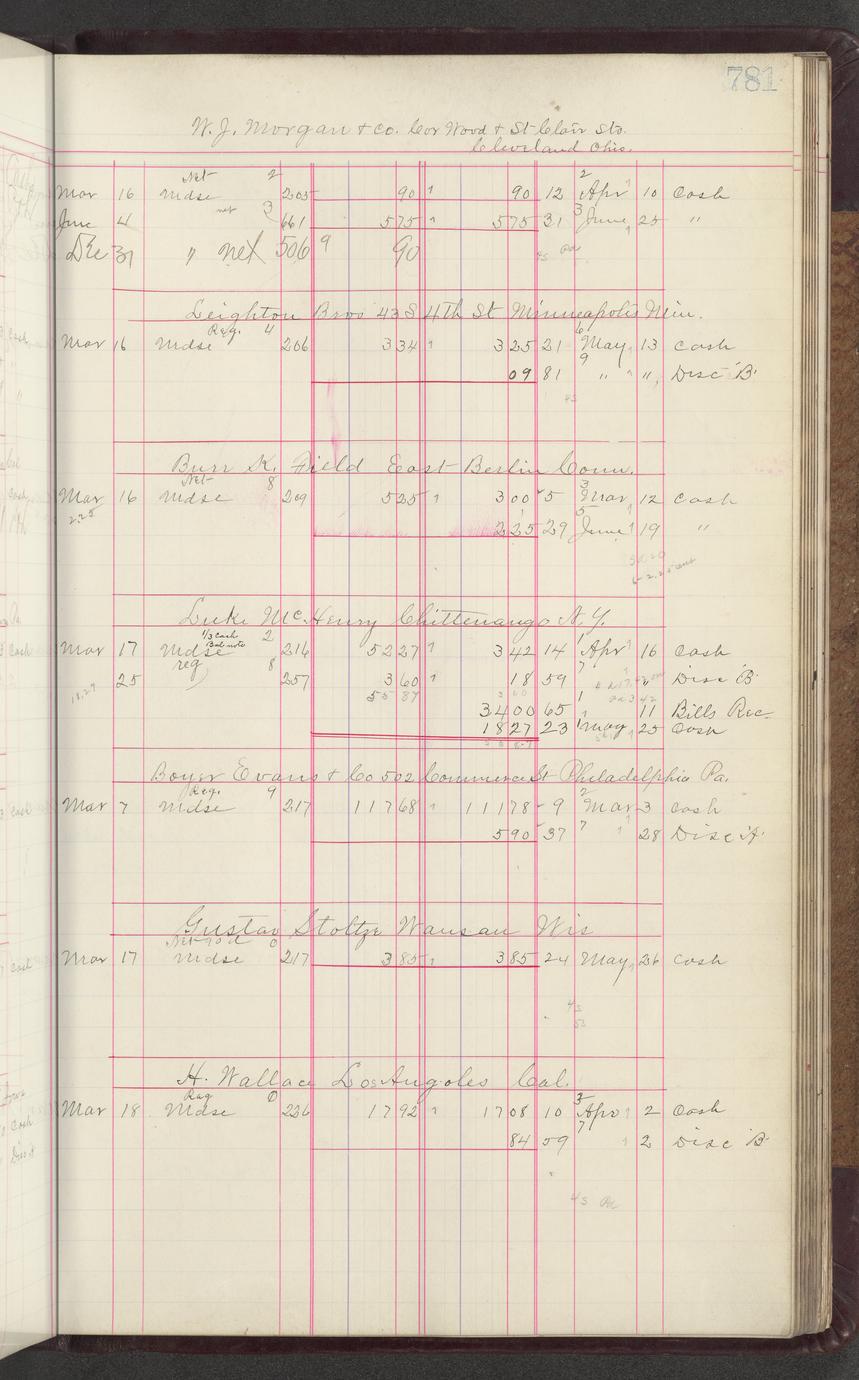 781
W. J. Morgan & Co. Cor Wood & St Clair Sts.
Cleveland Ohio.
Net 2 2
Mar 16 Mdse 205 90 90 12 Apr 10 Cash
net 3 3
June 4 661 575 " 575 31 June 25 "
Dec 31 " net 506 9 90
Leighton Bros 43 S 4th St Minneapolis Minn.
Reg. 4 6
Mar 16 Mdse 206 334 325 21 May 13 Cash
9
09 81 " " Disc B
45
Burr K. Field East Berlin Conn.
Net 8 3
Mar 16 Mdse 209 525 300 5 Mar 12 Cash
2.25 5
225 29 June 19 "
Luke McHenry Chittenango N.Y.
1/3 Cash 2 1
Bal note
Mar 17 Mdse 216 5227 342 14 Apr 16 Cash
reg 8 7
25 257 360 18 59 Disc B
18.27 5587 360 1
3400 65 11 Bills Rec
1827 23 May 25 Cash
Boyer Evans & Co 502 Commerce St Philadelphia Pa.
Reg. 9 2
Mar 7 Mdse 217 11768 11178 9 Mar 3 Cash
7
590 37 28 Disc A
Gustav Stoltze Wausau Wis
Net 90 d 0
Mar 17 Mdse 217 385 385 24 May 26 Cash
45
H. Wallace Los Angoles Cal.
Reg 0 3
Mar 18 Mdse 226 1792 1708 10 Apr 2 Cash
7
84 59 2 Disc B
45 Pd